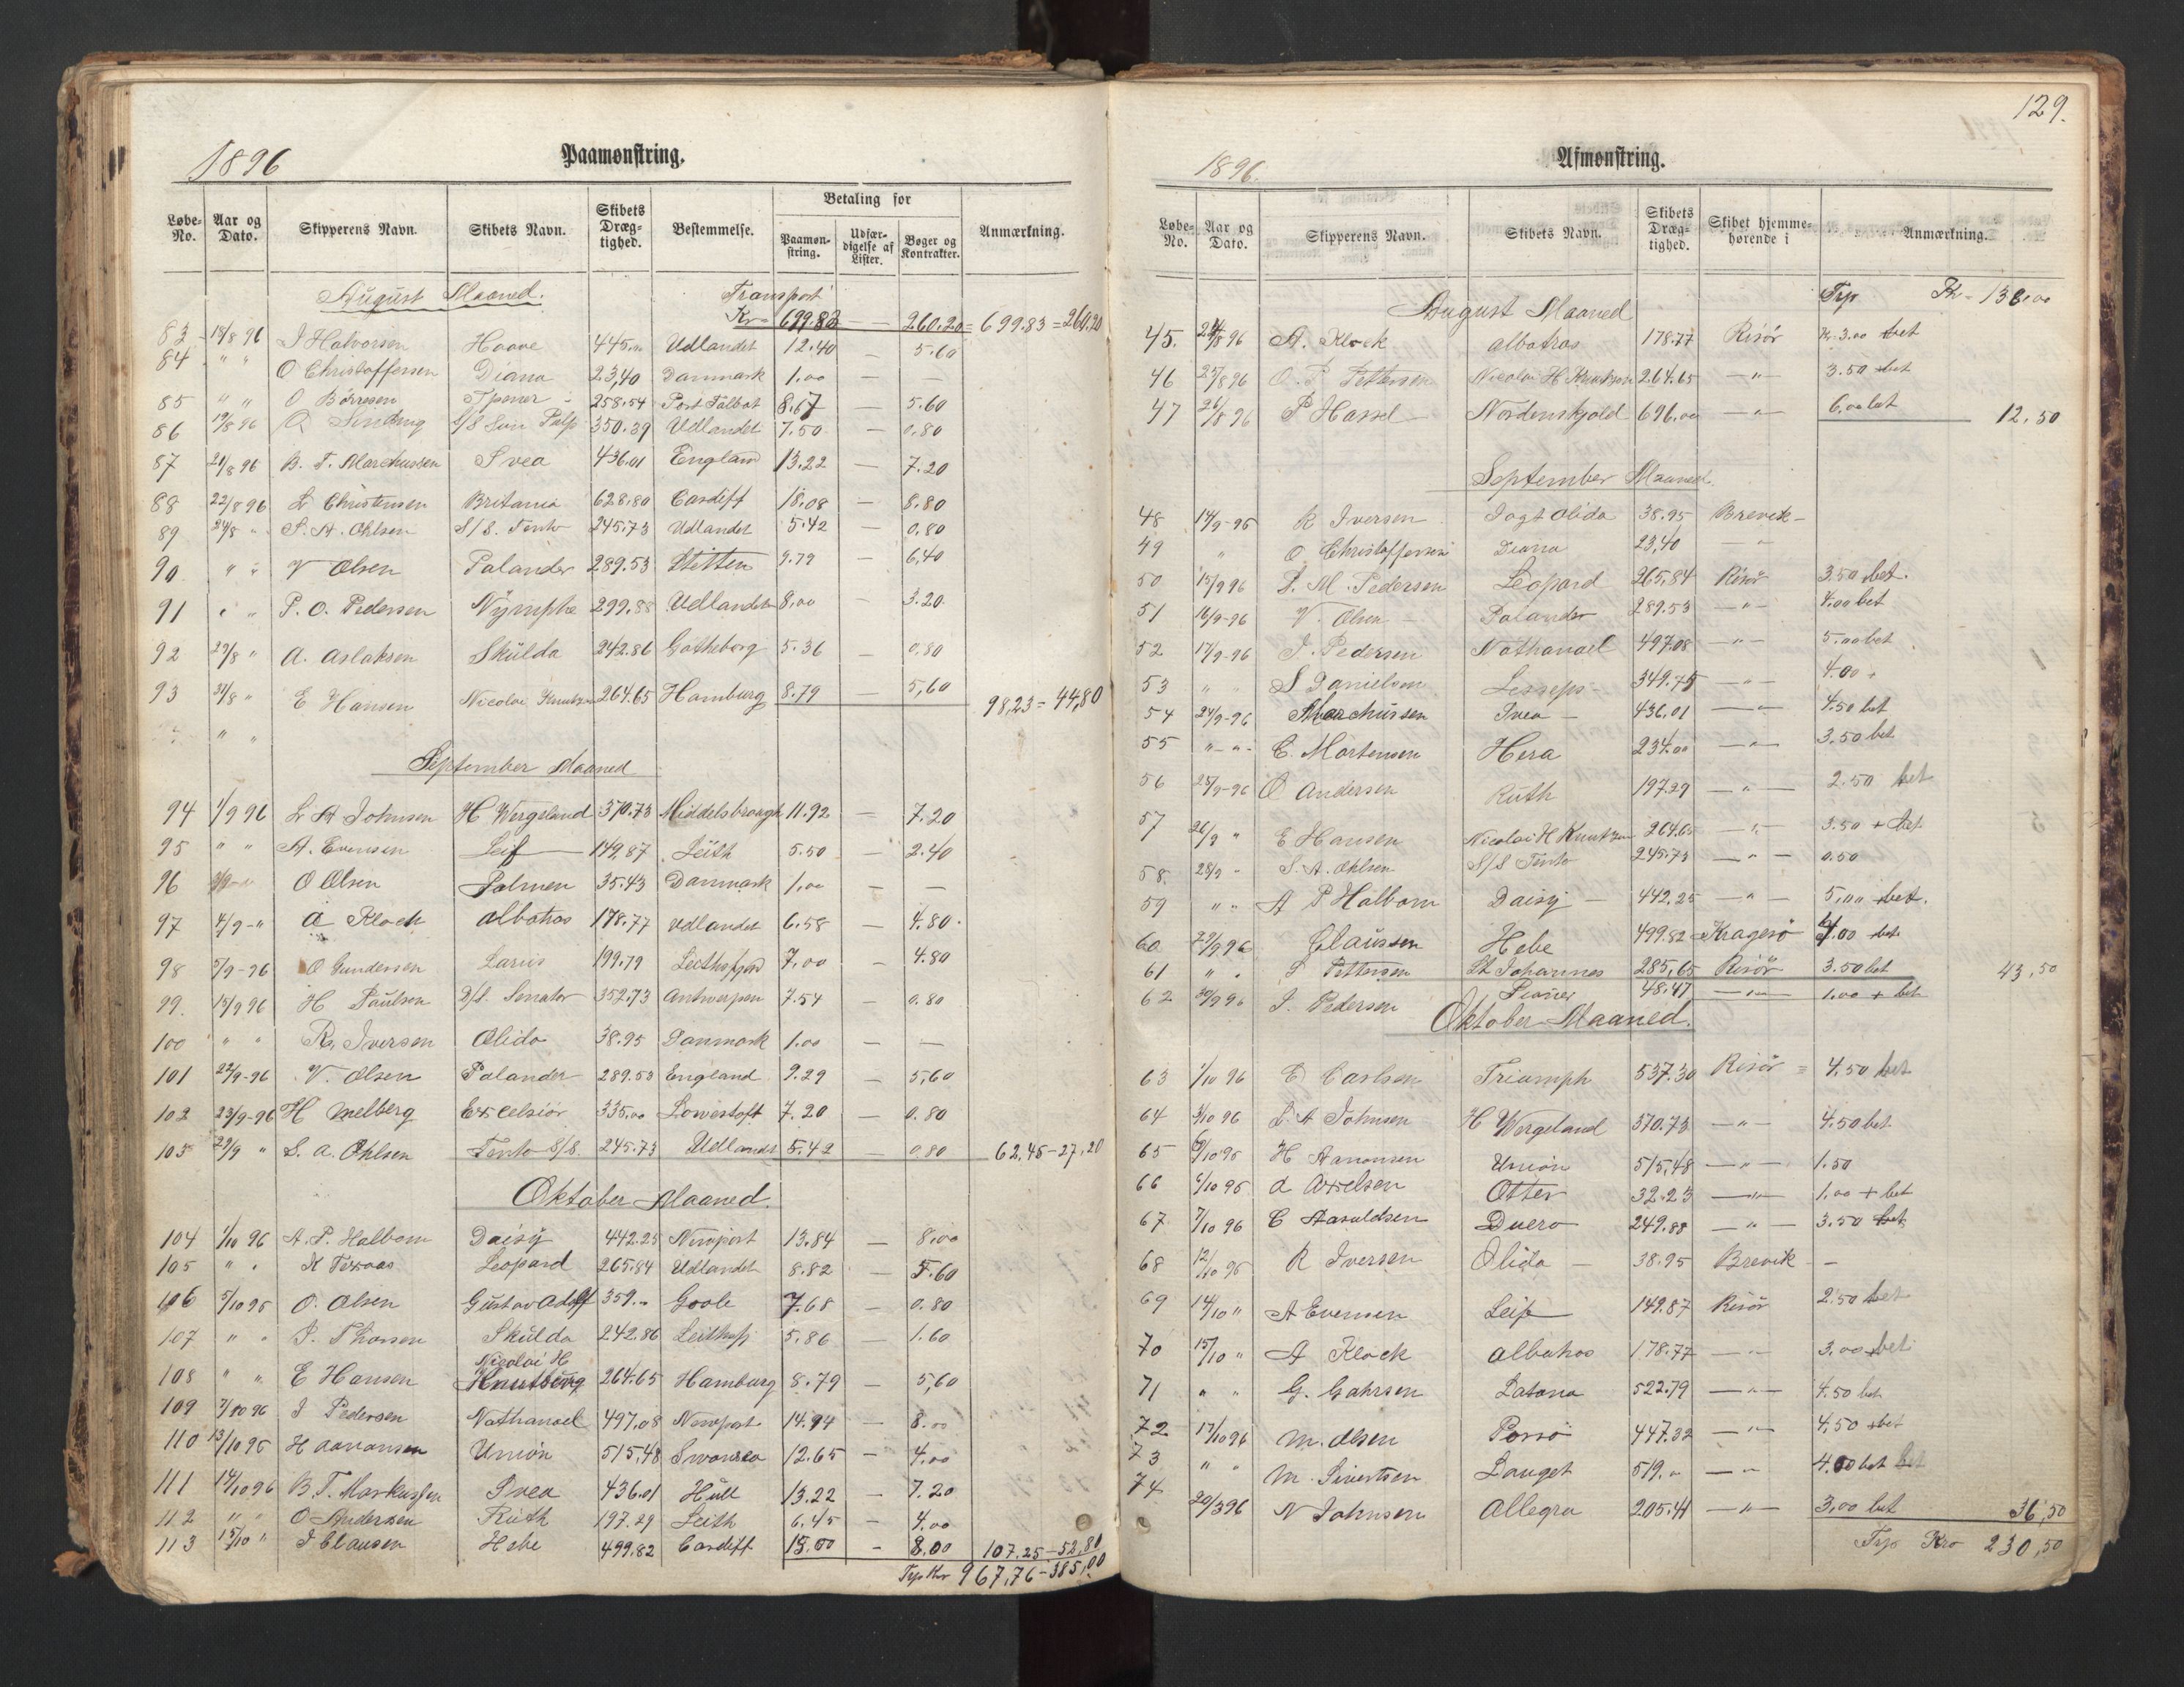 1896
Paamønstring.
Løbe-No. Aar og Dato. Skipperens Navn. Skibets Navn. Skibets Dræg-tighed. Bestemmelse. Betaling for Paamøn-string. Udfær-digelse af Lister. Bøger og Kontrakter. Anmærkning.
August Maaned. Transport
Kr= 699.83 — 260.20 = 699.83 = 260.20
83 18/8 96 J Halvorsen Haave 445,00 Udlandet 12.40 — 5.60
84 " " O Christoffersen Diana 23,40 Danmark 1.00 — —
85 " " O Börresen 258.54 Port Talbot 8.67 — 5.60
86 19/8 96 S/S 350.39 Udlandet 7.50 — 0.80
87 21/8 96 B. T. Marchussen Svea 436.01 England 13.22 — 7.20
88 22/8 96 L Christensen Britania 628.80 Cardiff 18.08 — 8.80
89 24/8 " S. A. Ohlsen S/S. Tento 245.73 Udlandet 5.42 — 0.80
90 " " V Olsen Palander 289.53 Stettin 9.79 — 6,40
91 " " P. O. Pedersen Nymphe 299.88 Udlandet 8,00 — 3.20
92 29/8 " A. Aslaksen Skulda 242.86 Gøtheborg 5.36 — 0.80
93 31/8 " E Hansen Nicolai Knutzen 264.65 Hamburg 8.79 — 5,60 98,23 = 44,80
" "
September Maaned
94 1/9 96 L A Johnsen H Wergeland 370.73 Middelsbrough 11.92 — 7.20
95 " " A. Evensen Leif 149,87 Leith 5.50 — 2.40
96 O Olsen Palmen 35.43 Danmark 1,00 — —
97 4/9 - " A Klock Albatros 178.77 Udlandet 6.58 — 4.80
98 5/9 - 96 O Gundersen Larus 199.79 7,00 — 4.80
99. 15/9 96 H Paulsen D/S. Senator 352.73 Antwerpen 7.54 — 0.80
100 " " R. Iversen Olida 38.95 Danmark 1.00 — —
101 22/9-96 V. Olsen Palander 289.53 England 9.29 — 5,60
102 23/9-96 H Melberg Excelsiör 335,00 Lowestoft 7.20 — 0.80
103 29/9 " S. A. Ohlsen Tento S/S 245.73 Udlandet 5.42 — 0.80 62,45 - 27,20
Oktober Maaned.
104 1/10 96 A. P. Halborn Daisy 442.25 Newport 13.84 — 8,00
105 " " K Leopard 265.84 Udlandet 8.82 — 5.60
106 5/10 96 O. Olsen Gustav Adolf 359.00 Goole 7.68 — 0.80
107 " " J. Thorsen Skulda 242.86 5,86 — 1.60
108 " " E Hansen Nicolai H Knutzen 264.65 Hamburg 8.79 — 5,60
109 7/10 96 J Pedersen Nathanael 497.08 Newport 14.94 — 8.00
110 13/10 96 H Aanansen Uniön 515,48 Swansea 12.65 — 4.00
111 14/10 96 B. T. Markussen Svea 436.01 Hull 13.22 — 7.20
112 " " O Andersen Ruth 197.29 Leith 6.45 — 4.00
113 15/10 " J Clausen Hebe 499.82 Cardiff 15.00 - 8.00 107.25 - 52,80
Trp Kr 967,76 - 385,00
129.
1896.
Afmønstring.
Løbe-No. Aar og Dato. Skipperens Navn. Skibets Navn. Skibets Dræg-tighed. Skibet hjemme-hørende i Anmærkning.
Trp Kr= 138,00
August Maaned
45. 24/8 96 A. Klock Albatros 178.77 Risör Kr. 3.00 bet
46 25/8 96 O. P. Pettersen Nicolai H Knutzen 264.65 —"— 3.50 bet
47 26/8 96 P Hassel Nordenskjold 696,00 —"— 6,00 bet 12,50
September Maaned.
48 14/9-96 R Iversen Jagt Olida 38.95 Brevik —
49 " O Christoffersen Diana 23,40 — "
50 15/9 96 P. M. Pedersen Leopard 265,84 Risör 3.50 bet.
51 16/9-96 V. Olsen — Palander 289.53 —"— 4,00 bet
52 17/9-96 J. Pedersen Nathanael 497.08 —"— 5,00 bet
53 " " S Danielsen Lesseps 349.75 —"— 4.00 "
54 24/9-96 Marchussen Svea — 436.01 —"— 4.50 bet
55 "-"- C. Mortensen Hera 234.00 —"— 3.50 bet
56 25/9-96 O Andersen Ruth 197.29 —"— 2.50 bet
57 26/9 " E Hansen Nicolai H Knutzen 264.65 —"— 3.50 + bet
58. 28/9 " S. A. Ohlsen S/S Tento 245.73 —"— 0.50
59 " " A P Halborn Daisy — 442,25 —"— 5,00 bet.
60 29/9 96 Claussen Hebe 499.82 Kragerö 4.00 bet
61 " " Pettersen St Johannes 285,65 Risör 3.50 bet 43,50
62 30/9 96 J. Pedersen 48.47 —"— 1.00 + bet
Oktober Maaned.
63 1/10 96 E Carlsen Triumph 537.30 Risör = 4,50 bet
64 3/10 96 L. A Johnsen H Wergeland 370.73 —"— 4.50 bet
65 6/10 96 H Aanonsen Uniön 515,48 —"— 1.50
66 6/10 96 A Axelsen Otter 32.23 —"— 1,00 + bet
67 7/10 96 C Aasuldsen Duero 249.88 —"— 3.50 bet
68 12/10 96 R Iversen Olida — 38.95 Brevik —
69 14/10 " A Evensen Leif 149.87 Risör 2.50 bet
70 15/10 " A Klock Albatros 178.77 —"— 3,00 bet
71 " " G. Gahrsen Latona 522.79 —"— 4.50 bet
72 17/10 96 M. Olsen 447.32 —"— 4,50 bet
73 " " M. Sivertsen Lauget 519.00 —"— 4.00 bet
74 N Johnsen Allegra 205.41 —"— 3,00 bet 36,50
Trp Kro 230,50